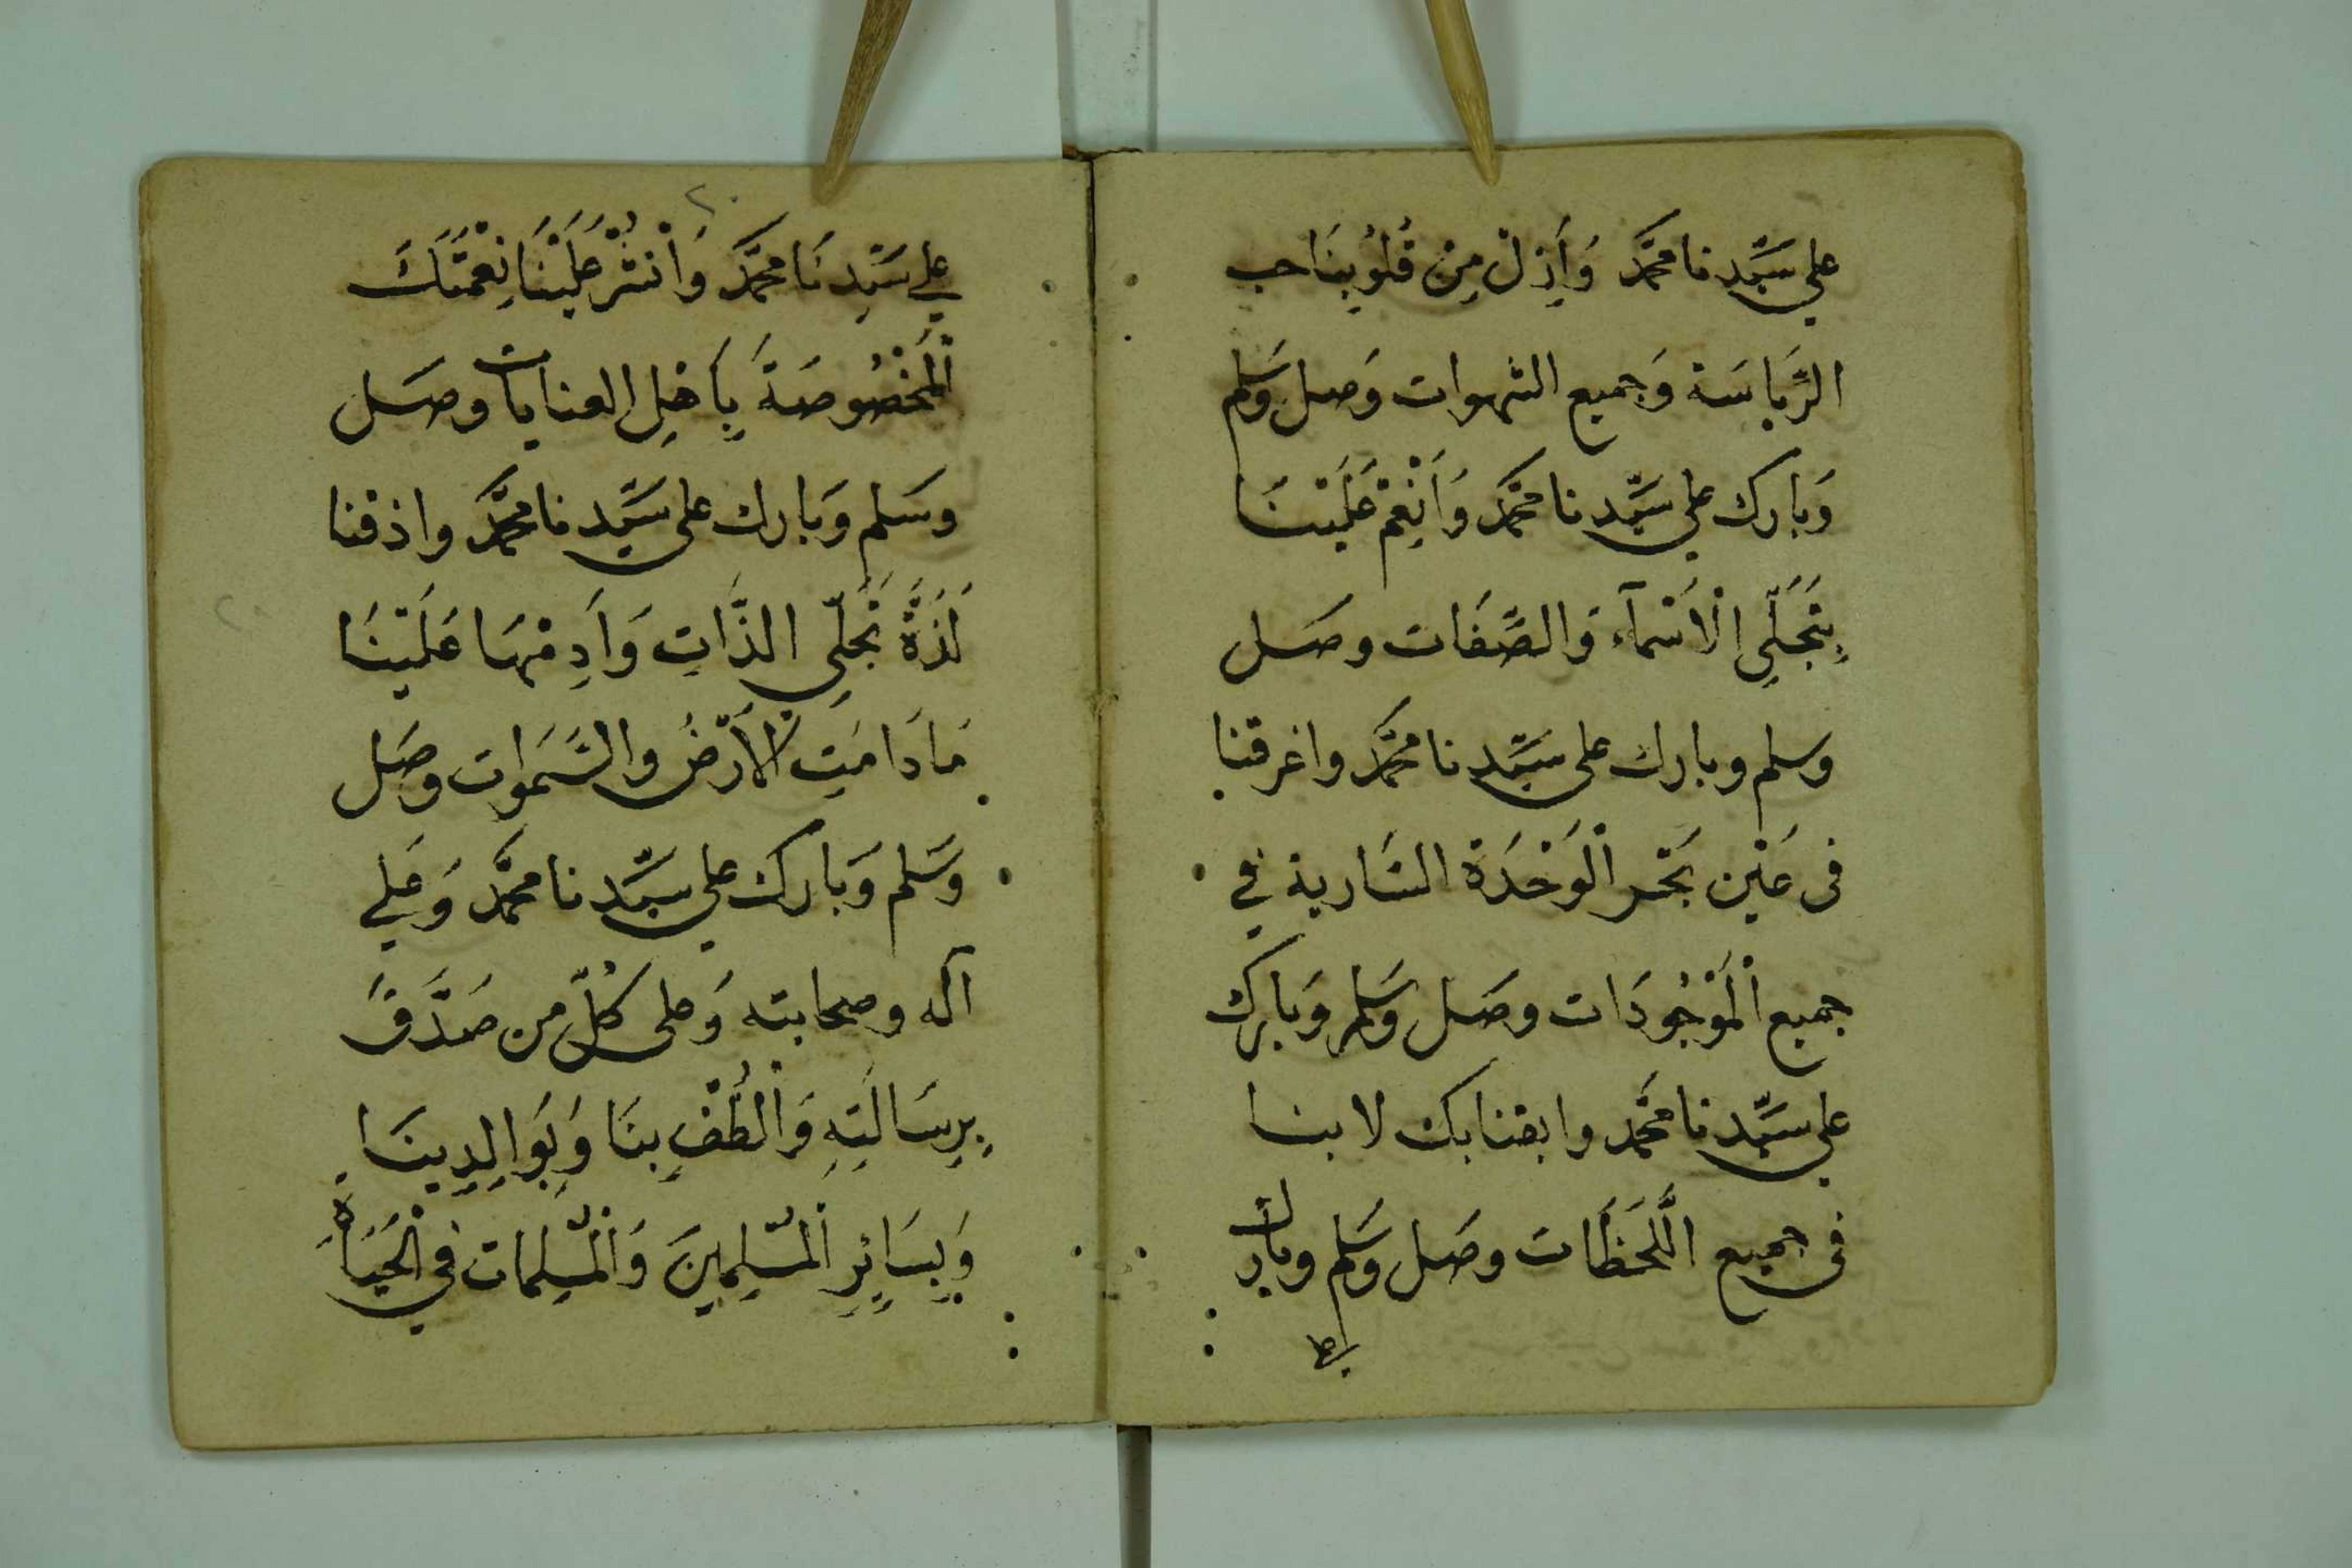 على سَيِّدنا محمَّد وَأَزِلْ مِنْ قُلُوبِنَا حب
الرِّيَاسَة وَجميع الشهوات وَصل وَسَلم
وَبارك على سَيِّدنا محمَّد وَأَنْعِمْ عَلَيْنَا
بِتَجَلِّي الْأَسْمآء وَالصِّفَات وصَل
وسلم وبارك على سَيِّدنا محمَّد واغرقنا
فى عَيْن بَحْر الْوَحْدَة السَّارية في
جميع الْمَوْجُودَات وصَل وَسَلم وَبَارك
على سَيِّدنا محمَّد وابقنا بك لا بنا
فى جميع اللَّحَظَات وصَل وَسَلم وبارك
على
٢٠
على سَيِّدِنَا محمَّد وَانْشُرْ عَلَيْنَا نِعْمَتَكَ
الْمَخْصُوصَةَ بِأَهْلِ العنايات وصَل
وسَلم وَبَارك على سَيِّدنا محمَّد واذقنا
لَذَّةَ تَجَلِّي الذَّاتِ وَأَدِمْهَا عَلَيْنَا
مَا دَامَتِ الْأَرْضُ والسَّمَوات وصَل
وَسَلم وَبَارك على سَيِّدنا محمَّد وَعَلى
آله وصحابته وَعلى كُلِّ من صَدَّقَ
بِرِسَالَتِهِ وَالْطُفْ بِنَا وَبِوَالِدِينَا
وَبِسَائِرِ الْمُسْلِمِينَ وَالْمُسْلِمات فِي الْحَيَاةِ
٢٠